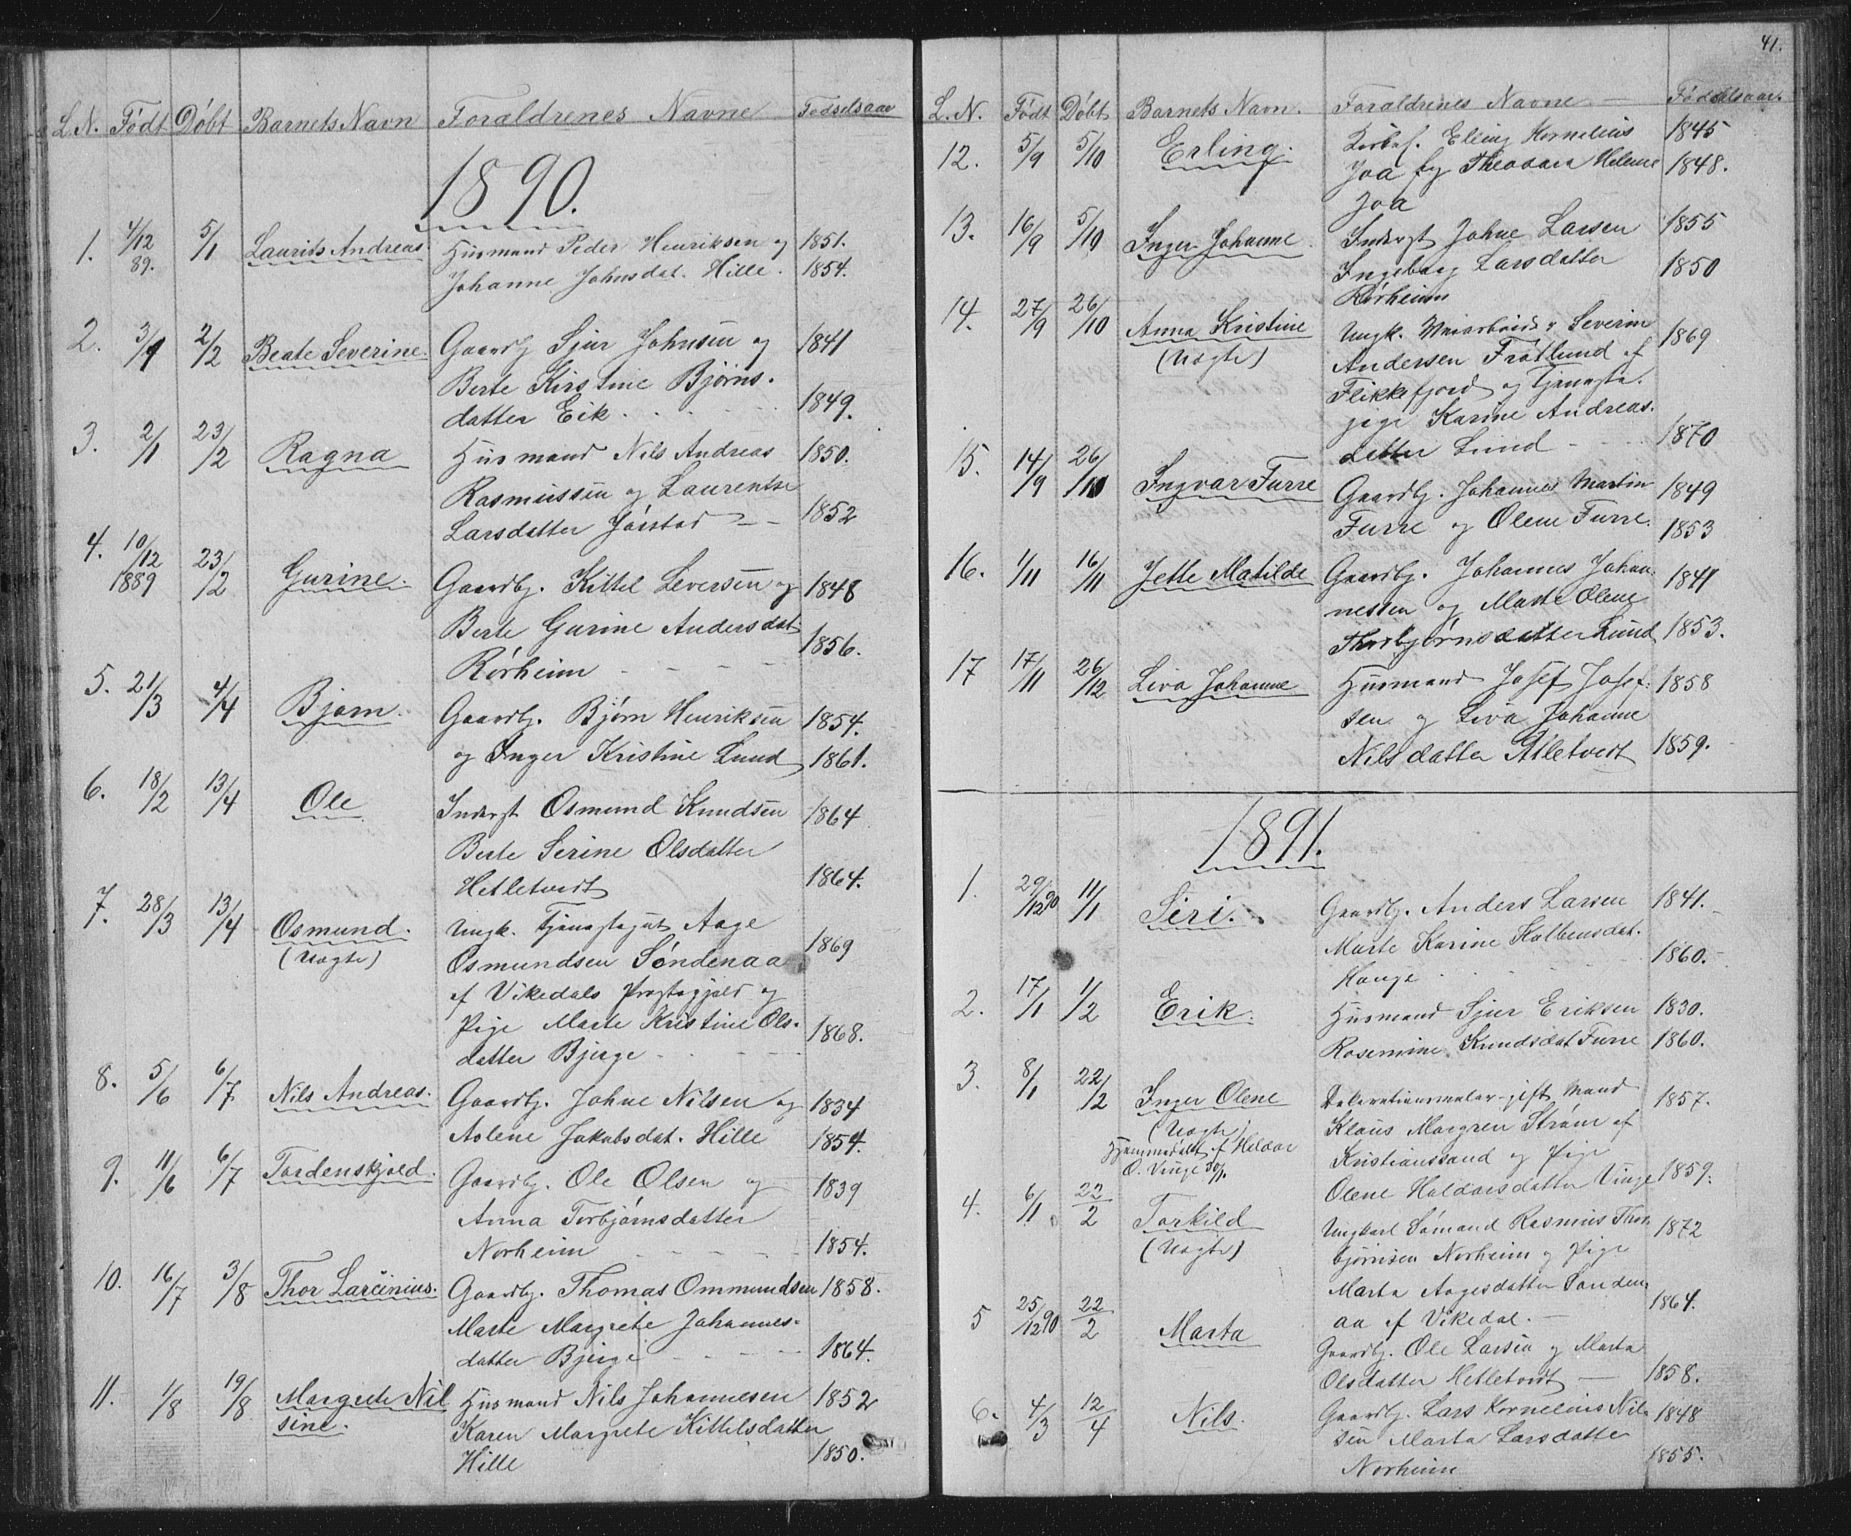 L.N. Født Døbt Barnets Navn Foraldrenes Navne Fødselsaar
1890.
1. 4/12 89. 5/1 Laurits Andreas Husmand Peder Henriksen og 1851.
Johanne Johnsdat. Hille. 1854.
2. 3/1 2/2 Beate Severine. Gaardbr. Sjur Johnsen og 1841
Berte Kirstine Bjørns-
datter Eik. 1849.
3. 2/1 23/2 Ragna Husmand Nils Andreas 1850.
Rasmussen og Laurentse
Larsdatter Jørstad 1852
4. 10/12 1889 23/2 Gurine. Gaardbr. Kittel Seversen og 1848
Berte Gurine Andersdat. 1856.
Rørheim
5. 21/3 4/4 Bjørn. Gaardbr. Bjørn Henriksen 1854.
og Inger Kristine Lund 1861.
6. 18/2 13/4 Ole Inderst Osmund Knudsen 1864
Berte Serine Olsdatter
Hetletvedt 1864.
7. 28/3 13/4 Osmund. Ungk. Tjenestegut Aage 1869
(Uægte) Osmundsen Søndenaa
af Vikedals Prestegjeld og
Pige Marte Kristine Ols- 1868.
datter Bjerge
8. 5/6 6/7 Nils Andreas. Gaardbr. Johne Nilsen og 1834
Aolene Jakobsdat. Hille 1854.
9. 11/6 6/7 Tordenskjold. Gaardbr. Ole Olsen og 1839
Anna Torbjørnsdatter
Norheim 1854.
10. 16/7 3/8 Thor Larcinius. Gaardbr. Thomas Ommundsen 1858.
Marte Margrete Johannes-
datter Bjerge 1864.
11. 1/8 19/8 Margrete Nil Husmand Nils Johannesen 1852
sine. Karen Margrete Kittelsdatter
Hille 1850.
41.
L.N. Født Døbt Barnets Navn. Foraldrenes Navne Fødselsaar.
12. 5/9 5/10 Erling. Elling Kornelius 1845
Joa og Theodora Helene 1848.
Joa
13. 16/9 5/10 Inger Johanne Inderst Johne Larsen 1855
Ingeborg Larsdatter 1850
Rørheim
14. 27/9 26/10 Anna Kristine Ungk. Severin 1869
(Uægte) Andersen Frøtlund af
Flikkefjord og Tjeneste-
pige Karine Andreas-
datter Lund 1870
15. 14/9 26/10 Ingvar Furre Gaardbr. Johannes Martin 1849
Furre og Olene Furre. 1853
16. 1/11 16/11 Jette Matilde Gaardbr. Johannes Johan- 1841
nessen og Marte Olene
Thorbjørnsdatter Lund 1853.
17 17/11 26/12 Liva Johanne Husmand Josef Josef- 1858
sen og Liva Johanne
Nilsdatter Hetletvedt 1859.
1891.
1. 29/12 90 11/1 Siri. Gaardbr. Anders Larsen 1841.
Marte Karine Kolbensdat. 1860.
Hauge
2. 17/1 1/2 Erik. Husmand Sjur Eriksen 1830.
Rosemine Knudsdat Furre 1860.
3. 8/1 22/2 Inger Olene Dekorationsmaler gift Mand 1857.
(Uægte) Klaus Morgren Strøm af
Hjemmedøbt af Haldor Kristianssand og Pige
O. Vinge Olene Haldorsdatter Vinge 1859.
4. 6/1 22/2 Torkild Ungkarl Sømand Rasmus Thor- 1872
(Uægte) bjørnsen Norheim og Pige
Marta Aagesdatter Sønden-
aa af Vikedal. 1864.
5 25/12 90 22/2 Marta
Gaardbr. Ole Larsen og Marta
Olsdatter Hetletvedt 1858.
6. 4/3 12/4 Nils. Gaardbr. Lars Kornelius Nil- 1848
sen Marta Larsdatter
Norheim 1855.